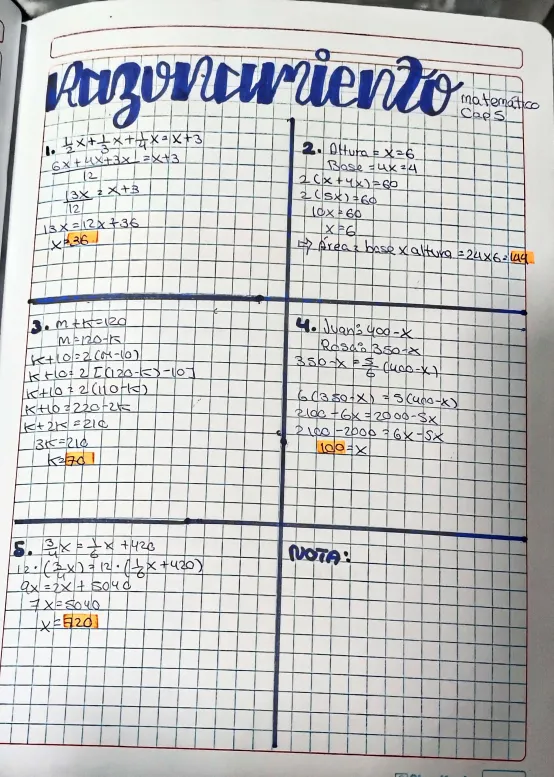 Razonamiento
matemático
Cap 5
1. 1/2 x + 1/3 x + 1/4 x = x + 3
6x + 4x + 3x / 12 = x + 3
13x / 12 = x + 3
13x = 12x + 36
x = 36
2. Altura = x = 6
Base = 4x = 4
2(x + 4x) = 60
2(5x) = 60
10x = 60
x = 6
⇒ Área = base x altura = 24 x 6 = 144
3. m + k = 120
m = 120 - k
k + 10 = 2(m - 10)
k + 10 = 2[(120 - k) - 10]
k + 10 = 2(110 - k)
k + 10 = 220 - 2k
k + 2k = 210
3k = 210
k = 70
4. Juan: 400 - x
Rosa: 350 - x
350 - x = 5/6 (400 - x)
6(350 - x) = 5(400 - x)
2100 - 6x = 2000 - 5x
2100 - 2000 = 6x - 5x
100 = x
5. 3/4 x = 1/6 x + 420
12 · (3/4 x) = 12 · (1/6 x + 420)
9x = 2x + 5040
7x = 5040
x = 720
NOTA: